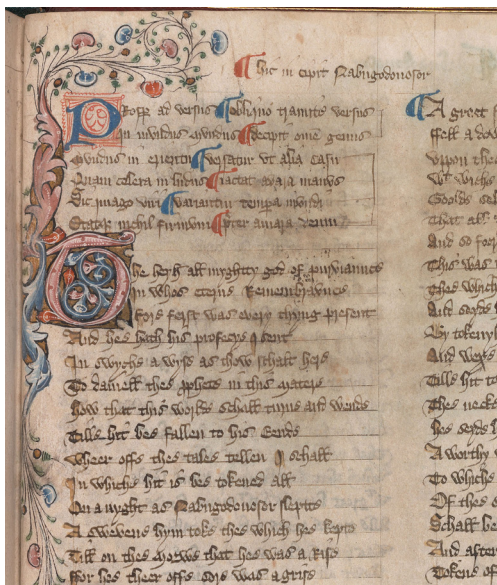 Hic in cipit Nabugodonosor
Prosp ad versus obliquo tramite versus
In mundus mundus decipit ome genus
Mundus in eventu versatur vt alia casu
Quam celera in ludus iactat avara manus
Sic imago viri variantur tempa mundi
Statque nichil firmum pter amare deum
The heyh all myghtty god of purviaunce
In whos eterne Remembraunce
Fore ferst was every thyng present
And he hath his profecye I sent
In swyche a wyse as thow schalt here
To daniell the pphete in this matere
how that this worlde schall turne and wende
Tille hit bee fallen to his Eende
Wheer offe the tale tellen I schall
In whiche hit is be tokened all
On a nyght as Nabugodonosor slepte
A swevene hym toke the which he kepte
Till on the Morwe that he was a Rise
ffor he theer offe sore was a grise
A greet
Fell a dow
Vppon the
Wt wiche
Goolde sel
That all
And so for
This was
Thes which
And seyde
By tokeny
And wexe
Tille hit to
Thes necke
hes seyde
A worthy
To whiche
Of thes
Schall be
And after
Tokene of